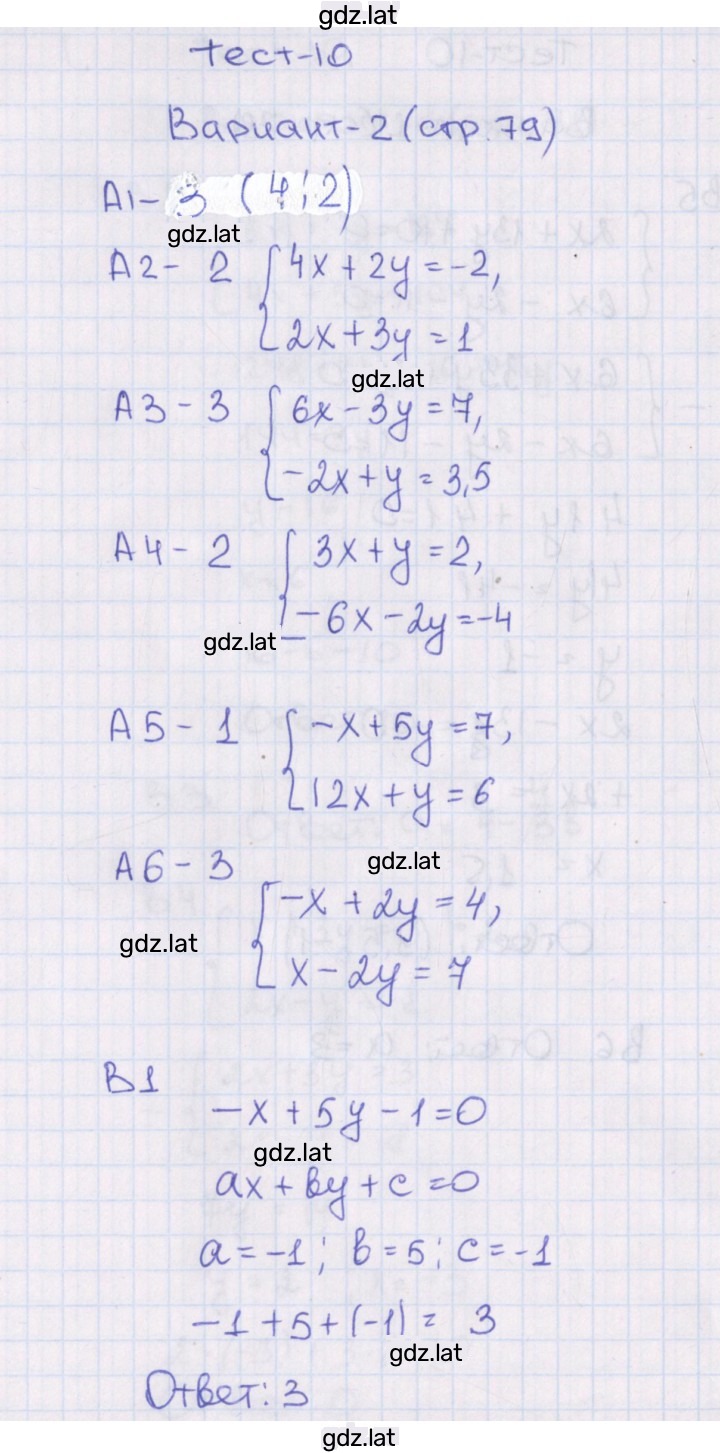 gdz.lat
Тест-10
Вариант-2 (стр.79)
А1- 3 (4;2)
gdz.lat
А2- 2 { 4x + 2y = -2,
2x + 3y = 1
gdz.lat
А3 - 3 { 6x - 3y = 7,
-2x + y = 3,5
А4 - 2 { 3x + y = 2,
-6x - 2y = -4
gdz.lat
А5 - 1 { -x + 5y = 7,
12x + y = 6
А6 - 3 gdz.lat
{ -x + 2y = 4,
gdz.lat
x - 2y = 7
В1
-x + 5y - 1 = 0
gdz.lat
ax + вy + c = 0
a = -1; в = 5; c = -1
-1 + 5 + (-1) = 3
gdz.lat
Ответ: 3
gdz.lat